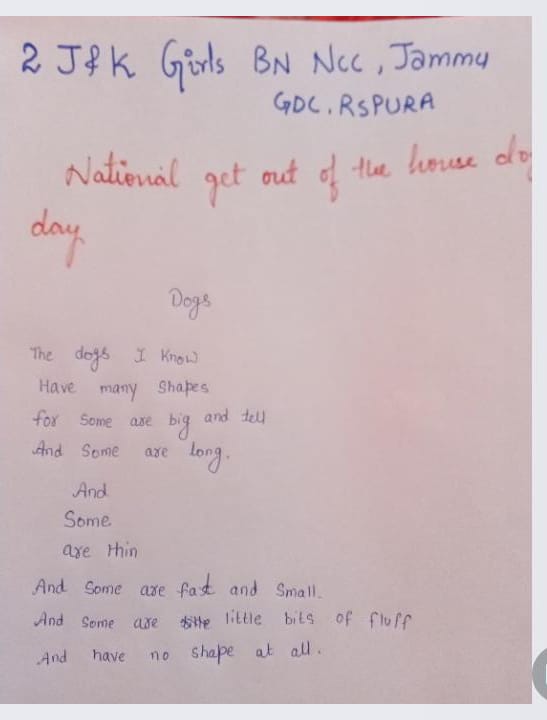 2 J&K Girls BN NCC, Jammu
GDC. RSPURA
National get out of the house do
day
Dogs
The dogs I know
Have many Shapes
for Some are big and tell
And Some are long.
And
Some
are thin
And Some are fast and Small.
And Some are little bits of fluff
And have no shape at all.